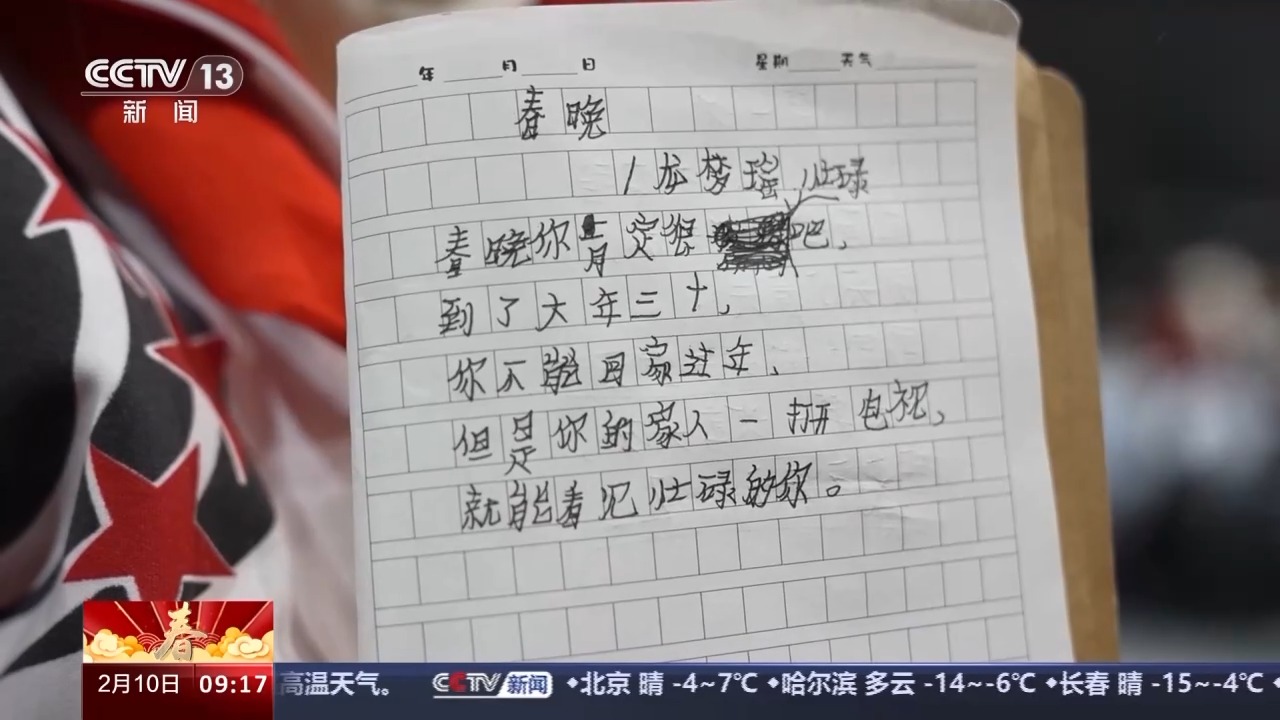 CCTV 13
新闻
年 月 日 星期 天气
春晚
/龙梦瑶
春晚你肯定很忙碌吧，
到了大年三十，
你不能回家过年，
但是你的家人一打开电视，
就能看见忙碌的你。
春
2月10日 09:17 高温天气。 CCTV新闻 •北京 晴 -4~7℃ •哈尔滨 多云 -14~-6℃ •长春 晴 -15~-4℃